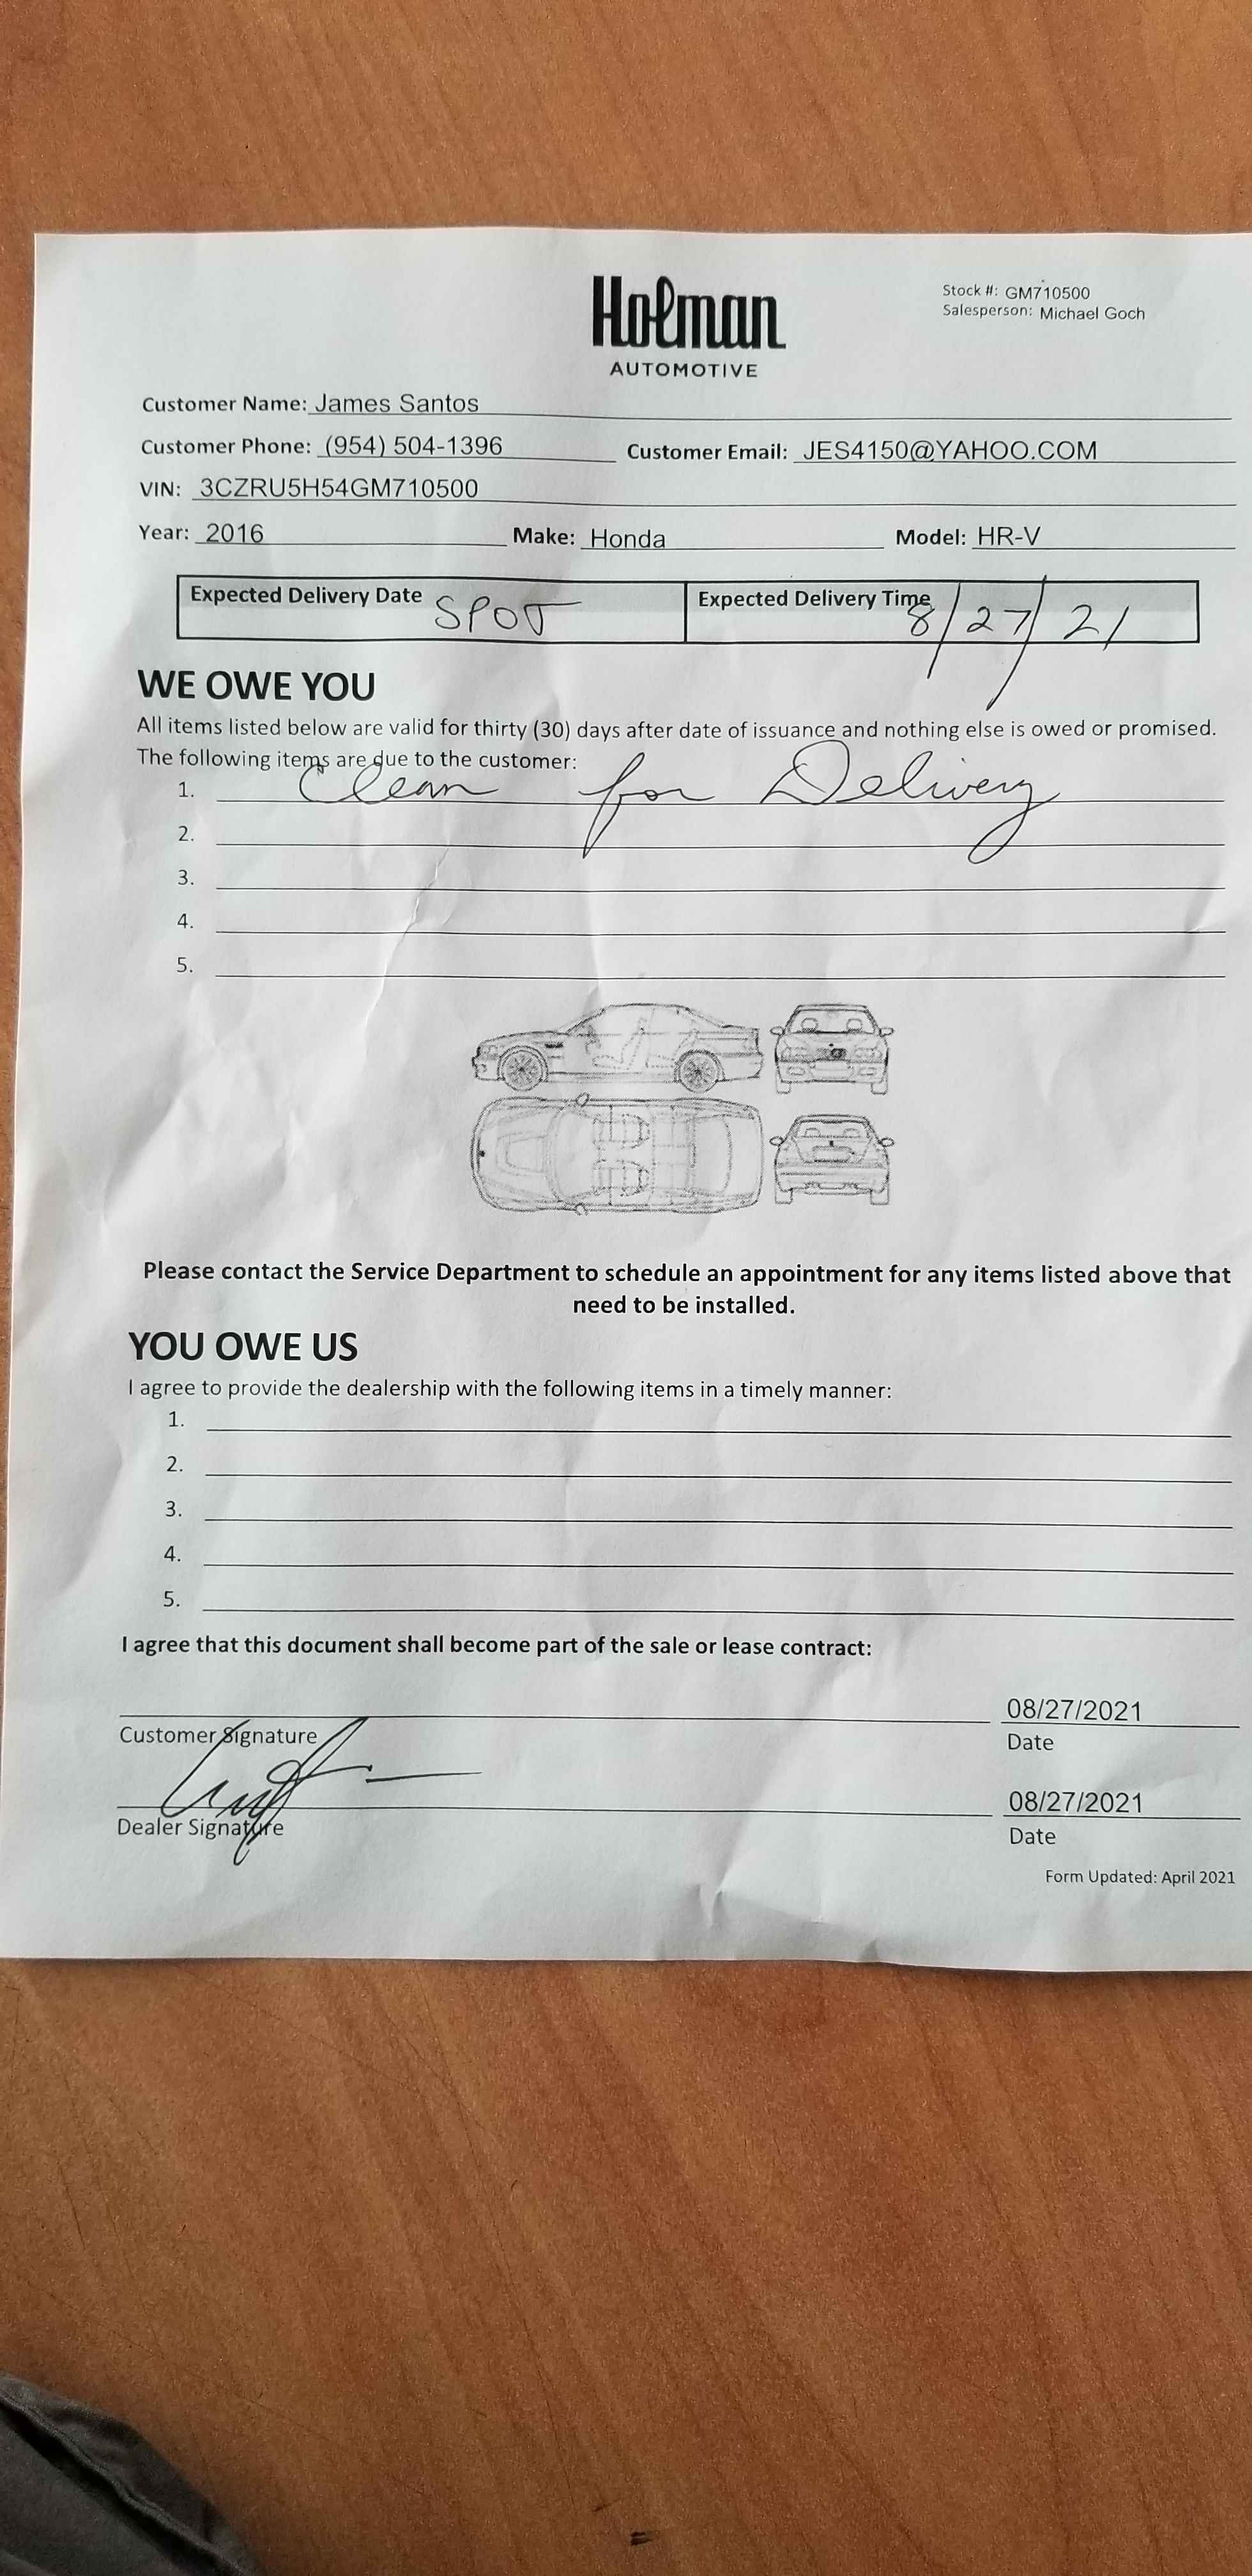 Holman
AUTOMOTIVE
Stock #: GM710500
Salesperson: Michael Goch
Customer Name: James Santos
Customer Phone: (954) 504-1396 Customer Email: JES4150@YAHOO.COM
VIN: 3CZRU5H54GM710500
Year: 2016 Make: Honda Model: HR-V
Expected Delivery Date SPOT Expected Delivery Time 8/27/21
WE OWE YOU
All items listed below are valid for thirty (30) days after date of issuance and nothing else is owed or promised.
The following items are due to the customer:
1. Clean for Delivery
2.
3.
4.
5.
Please contact the Service Department to schedule an appointment for any items listed above that
need to be installed.
YOU OWE US
I agree to provide the dealership with the following items in a timely manner:
1.
2.
3.
4.
5.
I agree that this document shall become part of the sale or lease contract:
08/27/2021
Customer Signature Date
08/27/2021
Dealer Signature Date
Form Updated: April 2021